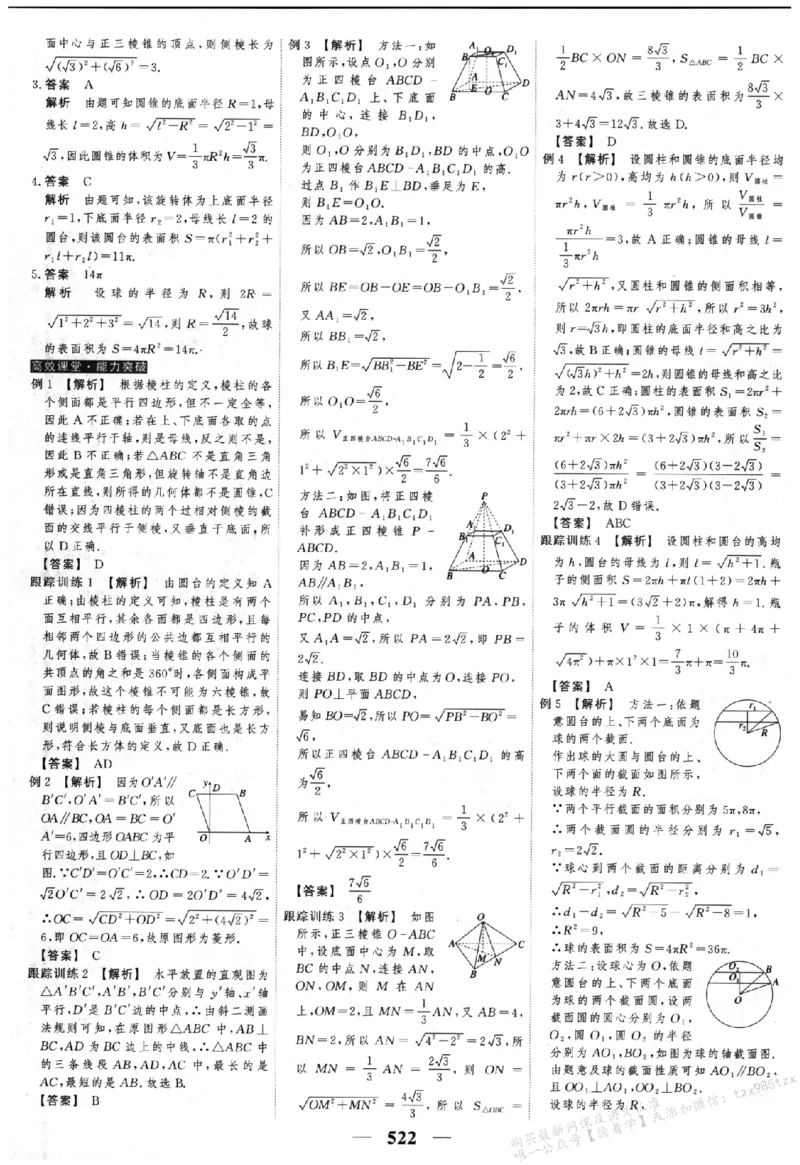 面中心与正三棱锥的顶点,则侧棱长为
√((√3)²+(√6)²)=3.
3.答案 A
解析 由题可知圆锥的底面半径R=1,母
线长l=2,高h=√(l²-R²)=√(2²-1²)=
√3,因此圆锥的体积为V=1/3πR²h=√3/3π.
4.答案 C
解析 由题可知,该旋转体为上底面半径
r₁=1,下底面半径r₂=2,母线长l=2的
圆台,则该圆台的表面积S=π(r₁²+r₂²+
r₁l+r₂l)=11π.
5.答案 14π
解析 设球的半径为R,则2R=
√(1²+2²+3²)=√14,则R=√14/2,故球
的表面积为S=4πR²=14π.
高效课堂·能力突破
例1 【解析】 根据棱柱的定义,棱柱的各
个侧面都是平行四边形,但不一定全等,
因此A不正确;若在上、下底面各取的点
的连线平行于轴,则是母线,反之则不是,
因此B不正确;若△ABC不是直角三角
形或是直角三角形,但旋转轴不是直角边
所在直线,则所得的几何体都不是圆锥,C
错误;因为四棱柱的两个过相对侧棱的截
面的交线平行于侧棱,又垂直于底面,所
以D正确.
【答案】 D
跟踪训练1 【解析】 由圆台的定义知A
正确;由棱柱的定义可知,棱柱是有两个
面互相平行,其余各面都是四边形,且每
相邻两个四边形的公共边都互相平行的
几何体,故B错误;当棱锥的各个侧面的
共顶点的角之和是360°时,各侧面构成平
面图形,故这个棱锥不可能为六棱锥,故
C错误;若棱柱的每个侧面都是长方形,
则说明侧棱与底面垂直,又底面也是长方
形,符合长方体的定义,故D正确.
【答案】 AD
例2 【解析】 因为O′A′∥
B′C′,O′A′=B′C′,所以
OA∥BC,OA=BC=O′
A′=6,四边形OABC为平
行四边形,且OD⊥BC,如
图.∵C′D′=O′C′=2,∴CD=2.∵O′D′=
√2O′C′=2√2,∴OD=2O′D′=4√2,
∴OC=√(CD²+OD²)=√(2²+(4√2)²)=
6,即OC=OA=6,故原图形为菱形.
【答案】 C
y D
C B
O A x
跟踪训练2 【解析】 水平放置的直观图为
△A′B′C′,A′B′,B′C′分别与y′轴、x′轴
平行,D′是B′C′边的中点,∴由斜二测画
法规则可知,在原图形△ABC中,AB⊥
BC,AD为BC边上的中线,∴△ABC中
的三条线段AB,AD,AC中,最长的是
AC,最短的是AB.故选B.
【答案】 B
例3 【解析】 方法一:如
图所示,设点O₁,O分别
为正四棱台ABCD-
A₁B₁C₁D₁上、下底面
的中心,连接B₁D₁,
BD,O₁O,
A₁ O₁ D₁
B₁ C₁
A D
B E O C
则O₁,O分别为B₁D₁,BD的中点,O₁O
为正四棱台ABCD-A₁B₁C₁D₁的高.
过点B₁作B₁E⊥BD,垂足为E,
则B₁E=O₁O.
因为AB=2,A₁B₁=1,
所以OB=√2,O₁B₁=√2/2,
所以BE=OB-OE=OB-O₁B₁=√2/2,
又AA₁=√2,
所以BB₁=√2,
所以B₁E=√(BB₁²-BE²)=√(2-1/2)=√6/2,
所以O₁O=√6/2,
所以V正四棱台ABCD-A₁B₁C₁D₁=1/3×(2²+
1²+√(2²×1²))×√6/2=7√6/6.
方法二:如图,将正四棱
台ABCD-A₁B₁C₁D₁
补形成正四棱锥P-
ABCD.
因为AB=2,A₁B₁=1,
AB∥A₁B₁,
P
A₁ D₁
B₁ C₁
A D
B O C
所以A₁,B₁,C₁,D₁分别为PA,PB,
PC,PD的中点,
又A₁A=√2,所以PA=2√2,即PB=
2√2.
连接BD,取BD的中点为O,连接PO,
则PO⊥平面ABCD,
易知BO=√2,所以PO=√(PB²-BO²)=
√6,
所以正四棱台ABCD-A₁B₁C₁D₁的高
为√6/2,
所以V正四棱台ABCD-A₁B₁C₁D₁=1/3×(2²+
1²+√(2²×1²))×√6/2=7√6/6.
【答案】 7√6/6
跟踪训练3 【解析】 如图
所示,正三棱锥O-ABC
中,设底面中心为M,取
BC的中点N,连接AN,
ON,OM,则M在AN
O
A C
M N
B
上,OM=2,且MN=1/3AN,又AB=4,
BN=2,所以AN=√(4²-2²)=2√3,所
以MN=1/3AN=2√3/3,则ON=
√(OM²+MN²)=4√3/3,所以S△OBC=
1/2BC×ON=8√3/3,S△ABC=1/2BC×
AN=4√3,故三棱锥的表面积为8√3/3×
3+4√3=12√3.故选D.
【答案】 D
例4 【解析】 设圆柱和圆锥的底面半径均
为r(r>0),高均为h(h>0),则V圆柱=
πr²h,V圆锥=1/3πr²h,所以V圆柱/V圆锥=
πr²h/(1/3πr²h)=3,故A正确;圆锥的母线l=
√(r²+h²),又圆柱和圆锥的侧面积相等,
所以2πrh=πr√(r²+h²),所以r²=3h²,
则r=√3h,即圆柱的底面半径和高之比为
√3,故B正确;圆锥的母线l=√(r²+h²)=
√((√3h)²+h²)=2h,则圆锥的母线和高之比
为2,故C正确;圆柱的表面积S₁=2πr²+
2πrh=(6+2√3)πh²,圆锥的表面积S₂=
πr²+πr×2h=(3+2√3)πh²,所以S₁/S₂=
(6+2√3)πh²/(3+2√3)πh²=(6+2√3)(3-2√3)/(3+2√3)(3-2√3)=
2√3-2,故D错误.
【答案】 ABC
跟踪训练4 【解析】 设圆柱和圆台的高均
为h,圆台的母线为l,则l=√(h²+1).瓶
子的侧面积S=2πh+πl(1+2)=2πh+
3π√(h²+1)=(3√2+2)π,解得h=1.瓶
子的体积V=1/3×1×(π+4π+
√(4π²))+π×1²×1=7/3π+π=10/3π.
【答案】 A
例5 【解析】 方法一:依题
意圆台的上、下两个底面为
球的两个截面.
作出球的大圆与圆台的上、
下两个面的截面如图所示,
设球的半径为R.
r₁
r₂
R
∵两个平行截面的面积分别为5π,8π,
∴两个截面圆的半径分别为r₁=√5,
r₂=2√2.
∵球心到两个截面的距离分别为d₁=
√(R²-r₁²),d₂=√(R²-r₂²),
∴d₁-d₂=√(R²-5)-√(R²-8)=1,
∴R²=9,
∴球的表面积为S=4πR²=36π.
方法二:设球心为O,依题
意圆台的上、下两个底面
为球的两个截面圆,设两
截面圆的圆心分别为O₁,
O₂,圆O₁,圆O₂的半径
O₂ B
O₁ A
O
分别为AO₁,BO₂,如图为球的轴截面图.
由题意及球的截面性质可知AO₁∥BO₂,
且OO₁⊥AO₁,OO₂⊥BO₂,
设球的半径为R,
522